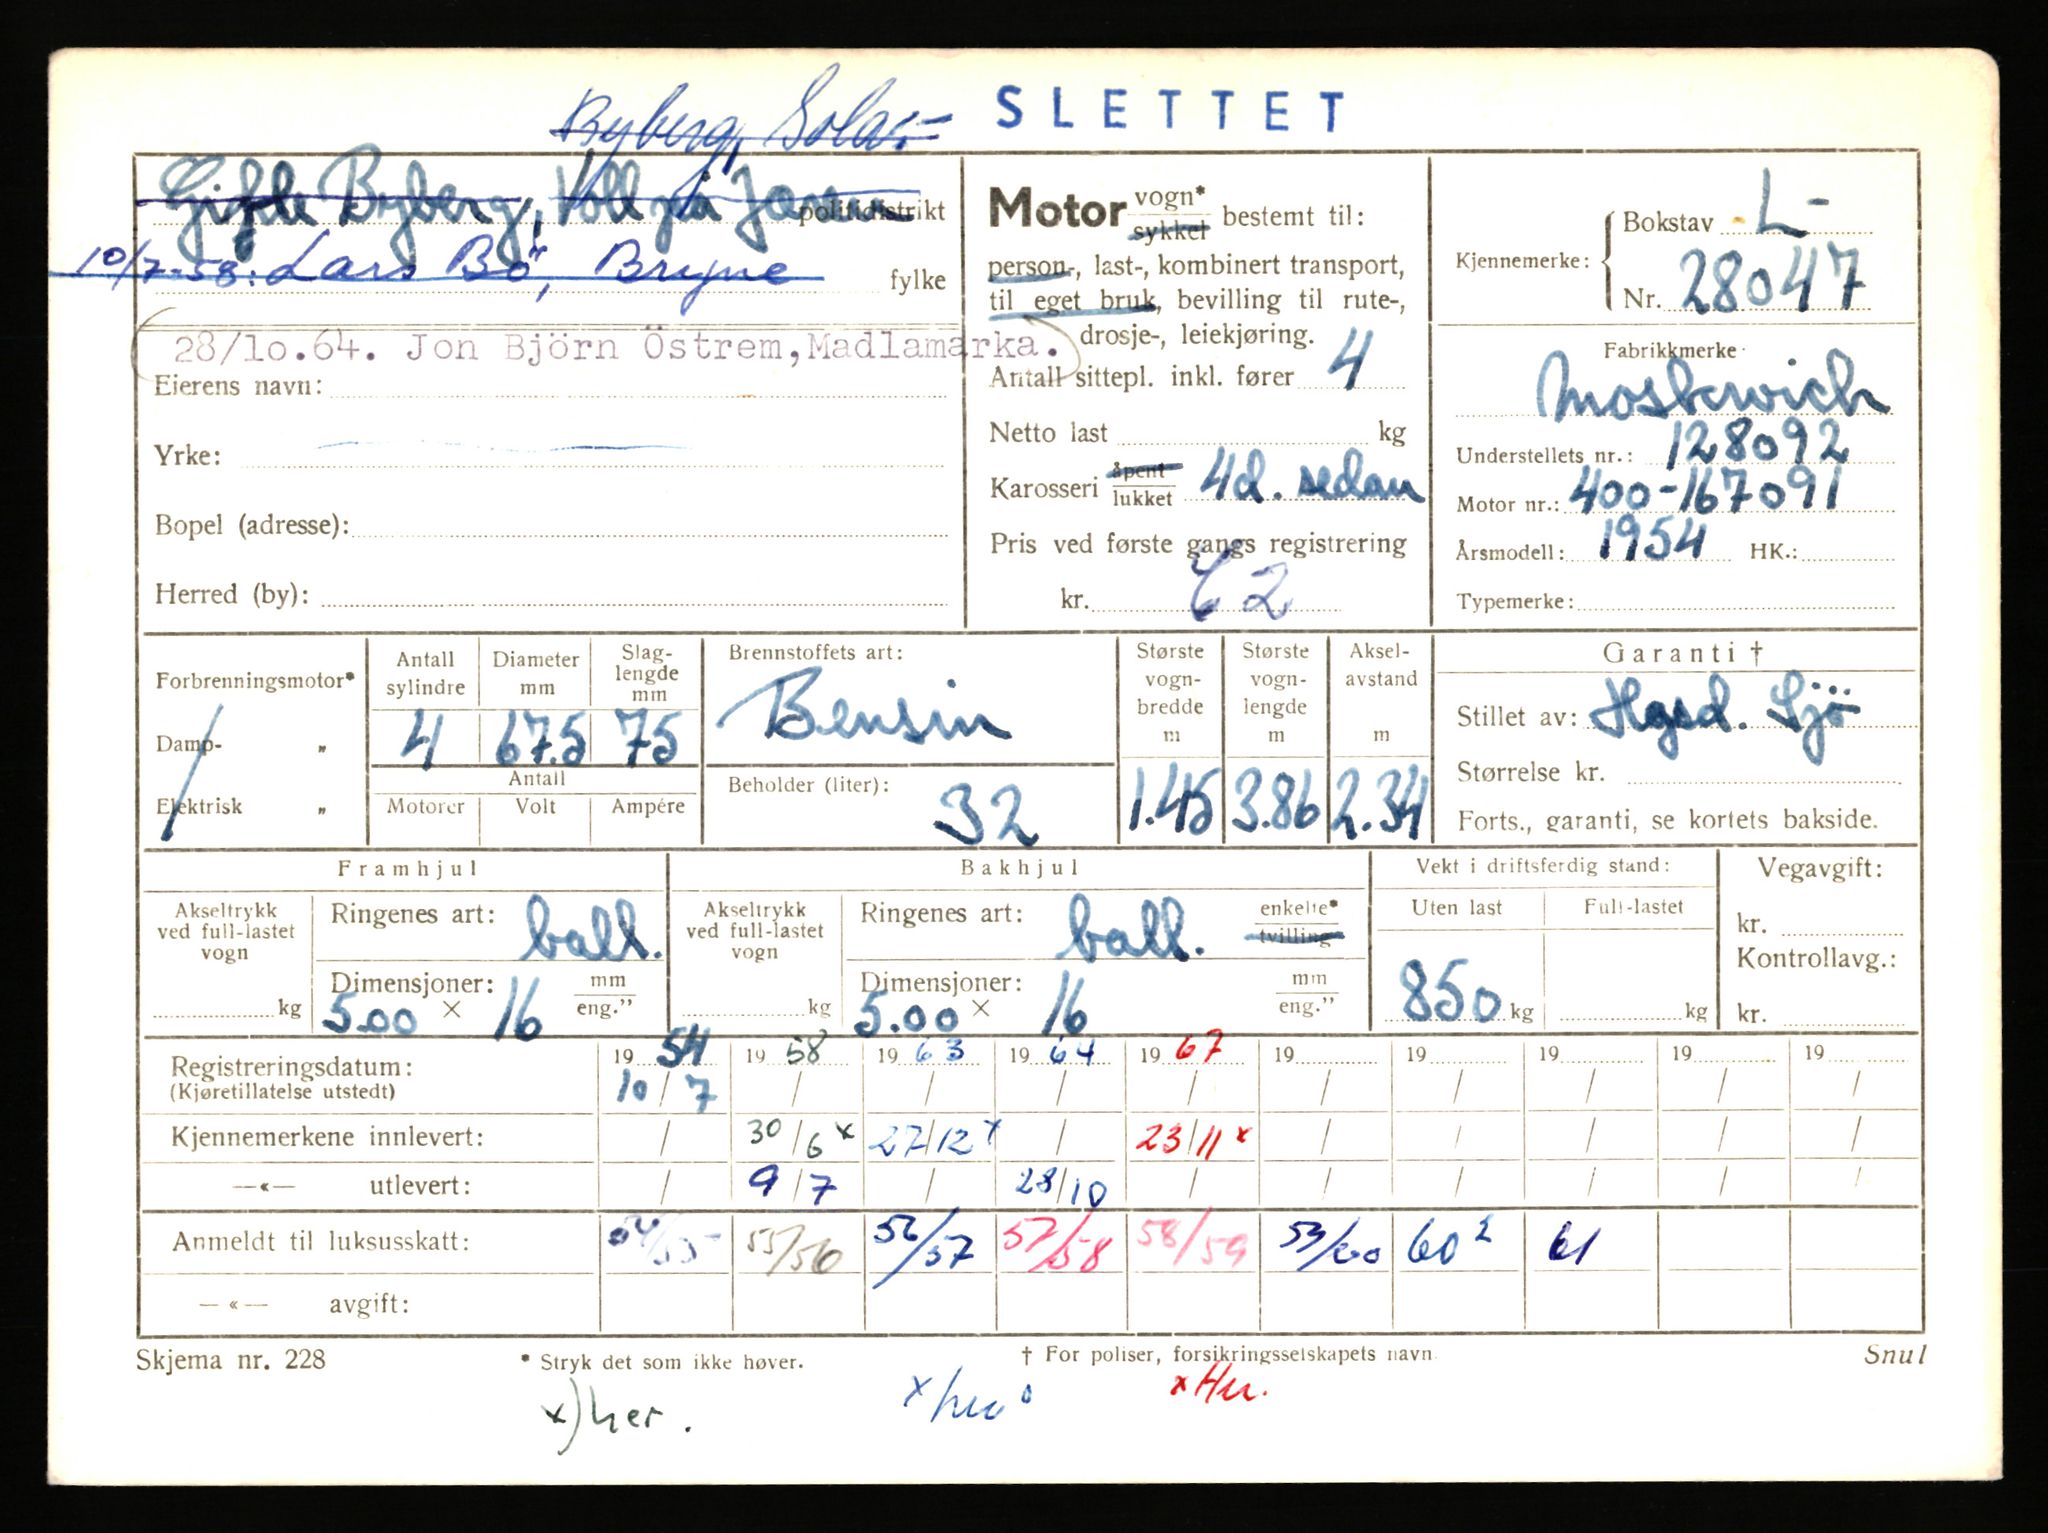 Byberg, Sola.
SLETTET
Gifle Byberg, Voll på Jæren politidistrikt
10/7-58: Lars Bö, Bryne fylke
28/10.64. Jon Björn Östrem, Madlamarka.
Eierens navn:
Yrke:
Bopel (adresse):
Herred (by):
Motor vogn* sykkel bestemt til:
person-, last-, kombinert transport,
til eget bruk, bevilling til rute-,
drosje-, leiekjøring.
Antall sittepl. inkl. fører 4
Netto last kg
Karosseri åpent lukket 4d. sedan
Pris ved første gangs registrering
kr. 62
Kjennemerke: Bokstav L-
Nr. 28047
Fabrikkmerke
Moskwich
Understellets nr.: 128092
Motor nr.: 400-167091
Årsmodell: 1954 HK.:
Typemerke:
Forbrenningsmotor*
Damp- "
Elektrisk "
Antall sylindre Diameter mm Slag-lengde mm
4 67.5 75
Antall
Motorer Volt Ampére
Brennstoffets art:
Bensin
Beholder (liter):
32
Største vogn-bredde m Største vogn-lengde m Aksel-avstand m
1.45 3.86 2.34
Garanti †
Stillet av: Hgsd. Sjö
Størrelse kr.
Forts., garanti, se kortets bakside.
Framhjul
Akseltrykk ved full-lastet vogn
kg
Ringenes art: ball.
Dimensjoner: mm
5.00 × 16 eng."
Bakhjul
Akseltrykk ved full-lastet vogn
kg
Ringenes art: ball. enkelte* tvilling
Dimensjoner: mm
5.00 × 16 eng."
Vekt i driftsferdig stand:
Uten last Full-lastet
850 kg kg
Vegavgift:
kr.
Kontrollavg.:
kr.
Registreringsdatum: 19 54 19 58 19 63 19 64 19 67 19 19 19 19 19
(Kjøretillatelse utstedt) 10/7 / / / / / / / / /
Kjennemerkene innlevert: / 30/6 x 27/12 x / 23/11 x / / / / /
—«— utlevert: / 9/7 / 28/10 / / / / / /
Anmeldt til luksusskatt: 54/55 55/56 56/57 57/58 58/59 59/60 60 2 61
—«— avgift:
Skjema nr. 228 * Stryk det som ikke høver. † For poliser, forsikringsselskapets navn. Snul
x) her. x her x Her.